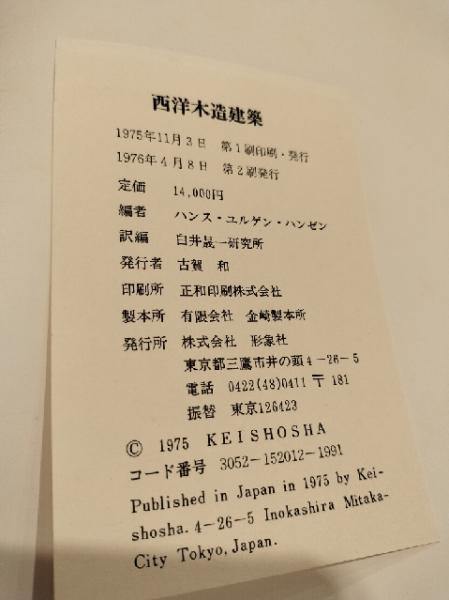 西洋木造建築
1975年11月3日 第1刷印刷・発行
1976年4月8日 第2刷発行
定価 14,000円
編者 ハンス・ユルゲン・ハンゼン
訳編 白井晟一研究所
発行者 古賀 和
印刷所 正和印刷株式会社
製本所 有限会社 金崎製本所
発行所 株式会社 形象社
東京都三鷹市井の頭4-26-5
電話 0422(48)0411 〒181
振替 東京126423
© 1975 KEISHOSHA
コード番号 3052-152012-1991
Published in Japan in 1975 by Kei-
shosha. 4-26-5 Inokashira Mitaka-
City Tokyo, Japan.